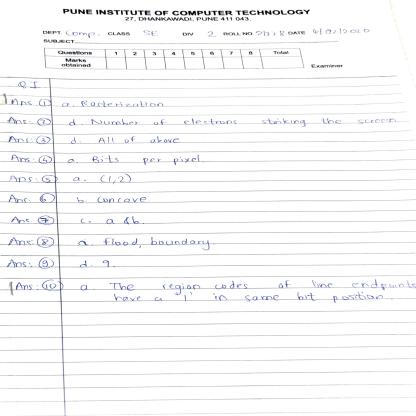 PUNE INSTITUTE OF COMPUTER TECHNOLOGY
27, DHANKAWADI, PUNE 411 043.
DEPT. Comp. CLASS SE DIV 2 ROLL NO. DATE
SUBJECT
Questions 1 2 3 4 5 6 7 8 Total
Marks obtained
Examiner
Q I
Ans ① a. Rasterization
Ans: ② d. Number of electrons striking the screen
Ans: ③ d. All of above
Ans: ④ a. Bits per pixel
Ans: ⑤ a. (1,2)
Ans: ⑥ b. Concave
Ans ⑦ c. a &b.
Ans: ⑧ a. flood, boundary.
Ans: ⑨ d. 9.
Ans: ⑩ a The region codes of line endpoints
have a '1' in same bit position.